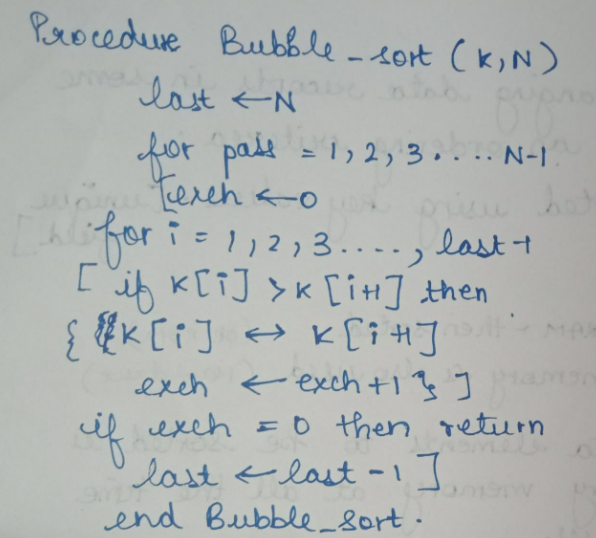 Procedure Bubble_sort (K,N)
last ← N
for pass = 1, 2, 3 .... N-1
[exch ← 0
for i = 1, 2, 3 ...., last-1
[ if K[i] > K [i+1] then
{ K[i] ↔ K[i+1]
exch ← exch+1 } ]
if exch = 0 then return
last ← last -1 ]
end Bubble_sort.